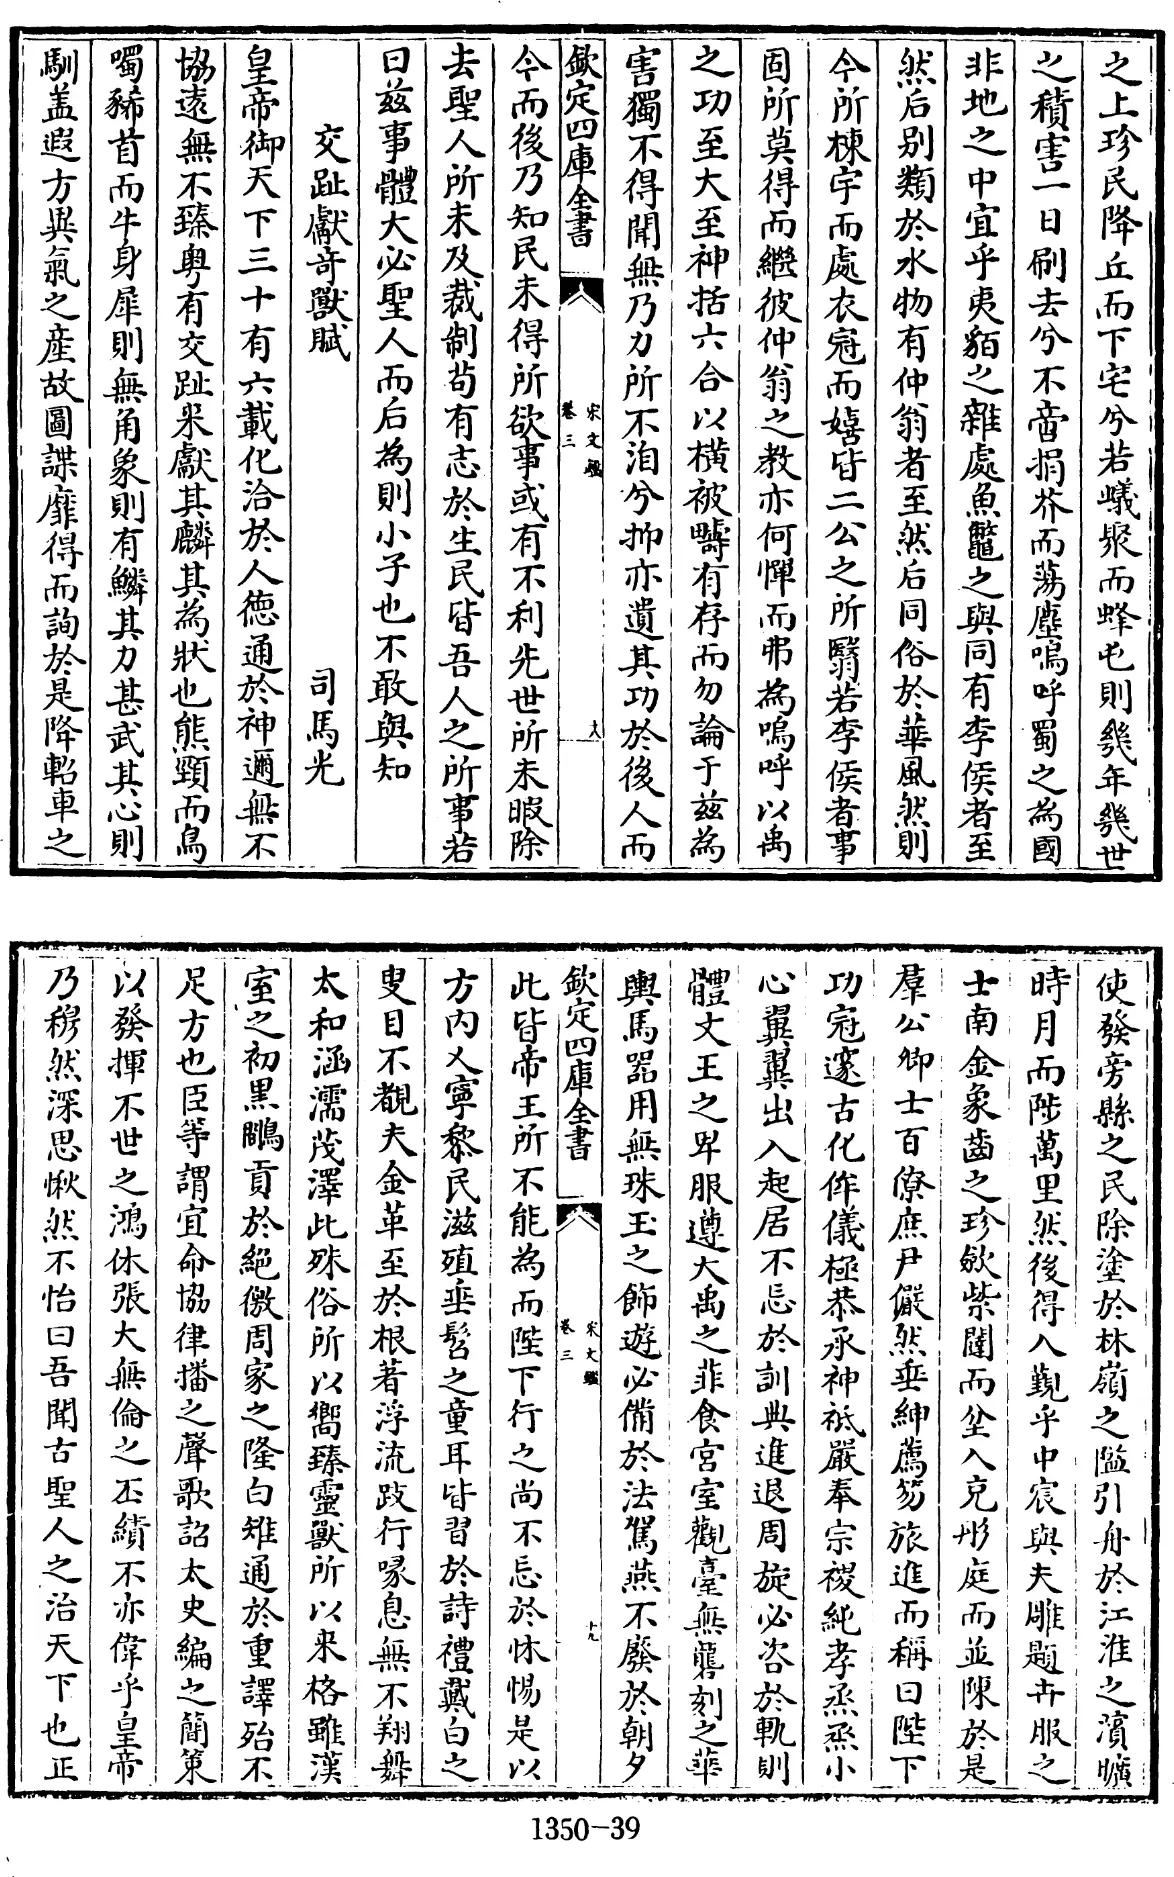 之上珍民降丘而下宅兮若蟻聚而蜂屯則幾年幾世
之積害一日刷去兮不啻捐芥而蕩塵嗚呼蜀之為國
非地之中宜乎夷貊之雜處魚鼈之與同有李侯者至
然后别類於水物有仲翁者至然后同俗於華風然則
今所棟宇而處衣冠而嬉皆二公之所翳若李侯者事
固所莫得而繼彼仲翁之教亦何憚而弗為嗚呼以禹
之功至大至神括六合以横被疇有存而勿論于兹為
害獨不得聞無乃力所不洎兮抑亦遺其功於後人而
欽定四庫全書
宋文鑑
卷三
大
今而後乃知民未得所欲事或有不利先世所未暇除
去聖人所未及裁制茍有志於生民皆吾人之所事若
曰兹事體大必聖人而后為則小子也不敢與知
交趾獻奇獸賦
司馬光
皇帝御天下三十有六載化洽於人德通於神邇無不
協遠無不臻粤有交趾来獻其麟其為狀也熊頸而鳥
噣豨首而牛身犀則無角象則有鱗其力甚武其心則
馴盖遐方異氣之產故圖諜靡得而詢於是降軺車之
使發旁縣之民除塗於林嶺之隘引舟於江淮之濱曠
時月而陟萬里然後得入覲乎中宸與夫雕題卉服之
士南金象齒之珍欵紫闥而坌入充彤庭而並陳於是
羣公卿士百僚庶尹儼然垂紳薦笏旅進而稱曰陛下
功冠邃古化侔儀極恭承神祗嚴奉宗禝純孝烝烝小
心翼翼出入起居不忘於訓典進退周旋必咨於軌則
體文王之卑服遵大禹之非食宮室觀臺無礱刻之華
輿馬器用無珠玉之飾遊必備於法駕燕不廢於朝夕
欽定四庫全書
宋文鑑
卷三
十九
此皆帝王所不能為而陛下行之尚不忘於怵惕是以
方内乂寧黎民滋殖垂髫之童耳皆習於詩禮戴白之
叟目不覩夫金革至於根著浮流跂行喙息無不翔舞
太和涵濡茂澤此殊俗所以嚮臻靈獸所以来格雖漢
室之初黒鶥貢於絕徼周家之隆白雉通於重譯殆不
足方也臣等謂宜命協律播之聲歌詔太史編之簡策
以發揮不世之鴻休張大無倫之丕績不亦偉乎皇帝
乃穆然深思愀然不怡曰吾聞古聖人之治天下也正
1350-39